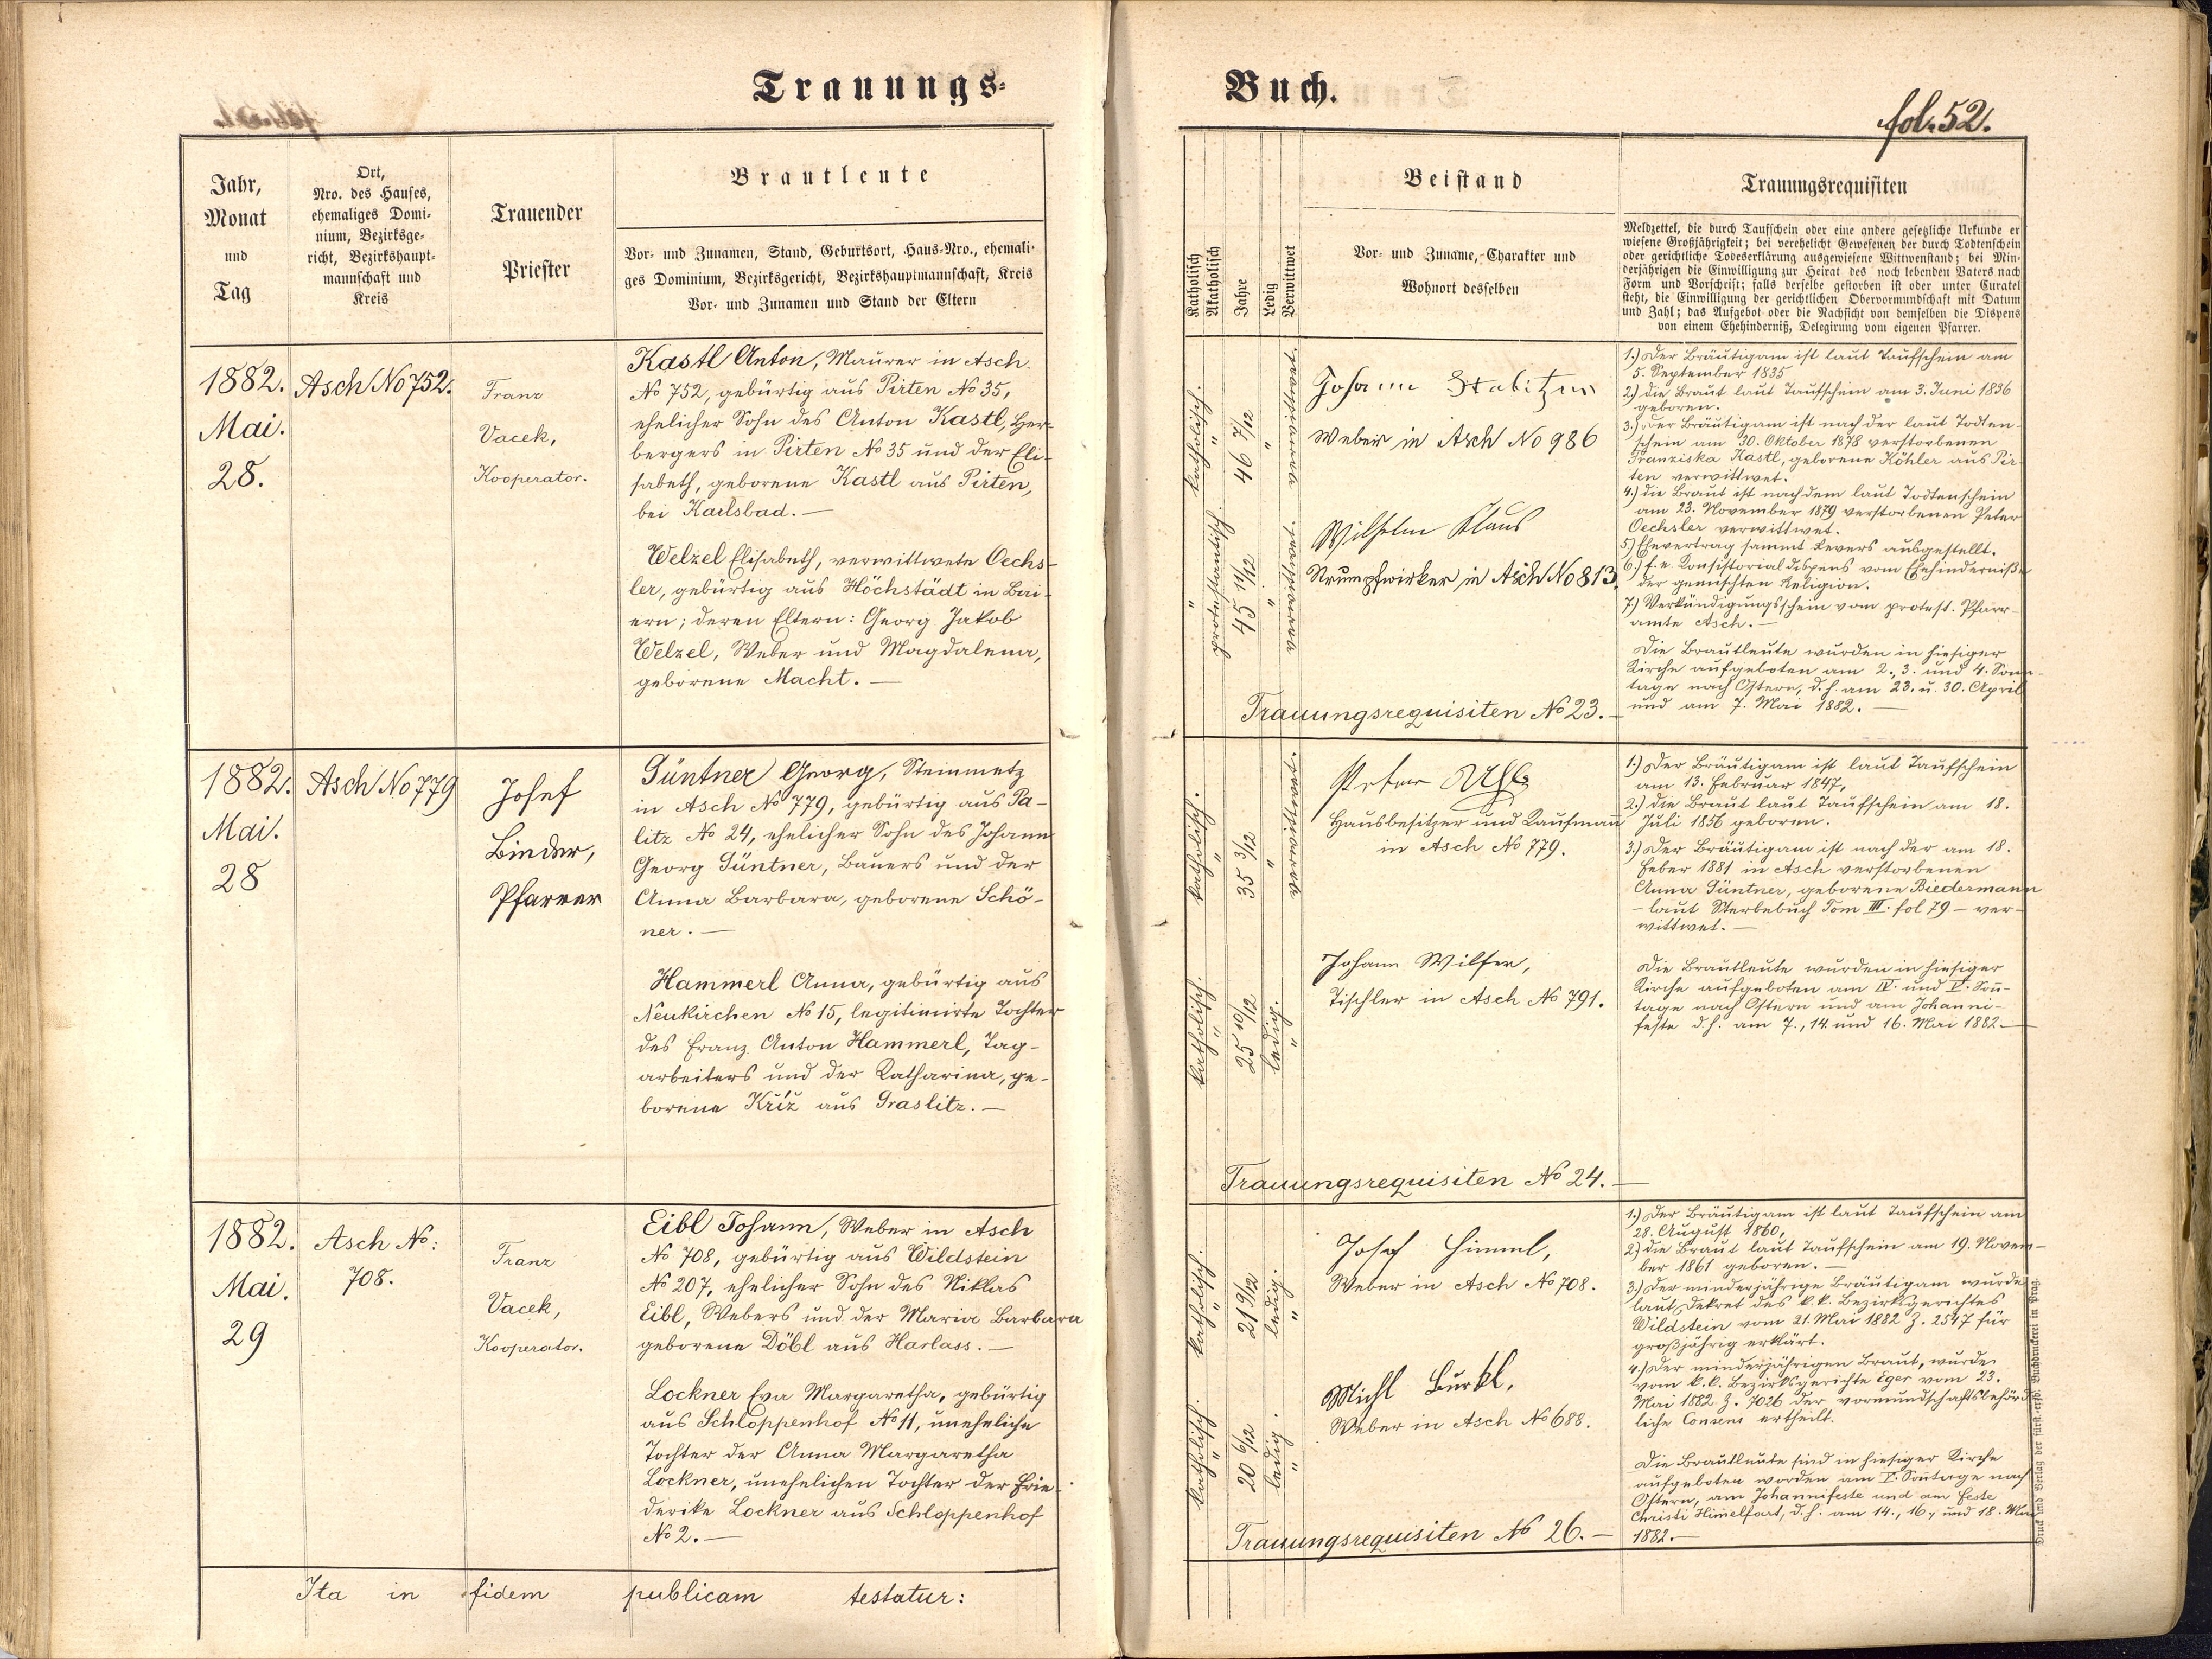 Trauungs-
Buch.
fol. 52.
Jahr,
Monat
und
Tag
Ort,
Nro. des Hauses,
ehemaliges Domi-
nium, Bezirksge-
richt, Bezirkshaupt-
mannschaft und
Kreis
Trauender
Priester
Brautleute
Vor- und Zunamen, Stand, Geburtsort, Haus-Nro., ehemali-
ges Dominium, Bezirksgericht, Bezirkshauptmannschaft, Kreis
Vor- und Zunamen und Stand der Eltern
Katholisch
Akatholisch
Jahre
Ledig
Verwittwet
Beistand
Vor- und Zuname, Charakter und
Wohnort desselben
Trauungsrequisiten
Meldzettel, die durch Taufschein oder eine andere gesetzliche Urkunde er
wiesene Großjährigkeit; bei verehelicht Gewesenen der durch Todtenschein
oder gerichtliche Todeserklärung ausgewiesene Wittwenstand; bei Min-
derjährigen die Einwilligung zur Heirat des noch lebenden Vaters nach
Form und Vorschrift; falls derselbe gestorben ist oder unter Curatel
steht, die Einwilligung der gerichtlichen Obervormundschaft mit Datum
und Zahl; das Aufgebot oder die Nachsicht von demselben die Dispens
von einem Ehehinderniß, Delegirung vom eigenen Pfarrer.
1882.
Mai.
28.
Asch No 752.
Franz
Vacek,
Kooperator.
Kastl Anton, Maurer in Asch
No 752, gebürtig aus Pirten No 35,
ehelicher Sohn des Anton Kastl, Her-
bergers in Pirten No 35 und der Eli-
sabeth, geborene Kastl aus Pirten,
bei Karlsbad. —
Welzel Elisabeth, verwittwete Oechs-
ler, gebürtig aus Höchstädt in Bai-
ern; deren Eltern: Georg Jakob
Welzel, Weber und Magdalena,
geborene Macht. —
katholisch.
46 7/12
verwittwet.
protestantisch.
45 11/12
verwittwet.
Johann
Weber in Asch No 986
Wilhelm Klaus
Strumpfwirker in Asch No 813.
Trauungsrequisiten No 23. —
1.) Der Bräutigam ist laut Taufschein am
5. September 1835
2.) die Braut laut Taufschein am 3. Juni 1836
geboren.
3.) Der Bräutigam ist nach der laut Todten-
schein am 30. Oktober 1878 verstorbenen
Franziska Kastl, geborene Köhler aus Pir-
ten verwittwet.
4.) die Braut ist nach dem laut Todtenschein
am 23. November 1879 verstorbenen Peter
Oechsler verwittwet.
5.) Ehevertrag sammt Revers ausgestellt.
6.) f. e. Konsistorialdispens vom Ehehindernisse
der gemischten Religion.
7.) Verkündigungsschein vom protest. Pfarr-
amte Asch. —
Die Brautleute wurden in hiesiger
Kirche aufgeboten am 2., 3. und 4. Sonn-
tage nach Ostern, d. h. am 23. u. 30. April
und am 7. Mai 1882. —
1882.
Mai.
28
Asch No 779
Josef
Binder,
Pfarrer
Güntner Georg, Steinmetz
in Asch No 779, gebürtig aus Pa-
litz No 24, ehelicher Sohn des Johann
Georg Güntner, Bauers und der
Anna Barbara, geborene Schö-
ner. —
Hammerl Anna, gebürtig aus
Neukirchen No 15, legitimirte Tochter
des Franz Anton Hammerl, Tag-
arbeiters und der Katharina, ge-
borene Kříž aus Graslitz. —
katholisch.
35 3/12
verwittwet.
katholisch.
25 10/12
ledig.
Peter
Hausbesitzer und Kaufmann
in Asch No 779.
Johann Wilfer,
Tischler in Asch No 791.
Trauungsrequisiten No 24. —
1.) Der Bräutigam ist laut Taufschein
am 13. Februar 1847,
2.) die Braut laut Taufschein am 18.
Juli 1856 geboren.
3.) Der Bräutigam ist nach der am 18.
Feber 1881 in Asch verstorbenen
Anna Güntner, geborene Biedermann
– laut Sterbebuch Tom III. fol 79 – ver-
wittwet. —
Die Brautleute wurden in hiesiger
Kirche aufgeboten am IV. und V. Son̄-
tage nach Ostern und am Johanni-
feste d. h. am 7., 14. und 16. Mai 1882. —
1882.
Mai.
29
Asch No:
708.
Franz
Vacek,
Kooperator.
Eibl Johann, Weber in Asch
No 708, gebürtig aus Wildstein
No 207, ehelicher Sohn des Niklas
Eibl, Webers und der Maria Barbara
geborene Döbl aus Harlass. —
Lockner Eva Margaretha, gebürtig
aus Schloppenhof No 11, uneheliche
Tochter der Anna Margaretha
Lockner, unehelichen Tochter der Frie-
derike Lockner aus Schloppenhof
No 2. —
katholisch.
21 9/12
ledig.
katholisch.
20 6/12
ledig.
Josef Himml,
Weber in Asch No 708.
Michl Burkl,
Weber in Asch No 688.
Trauungsrequisiten No 26. —
1.) Der Bräutigam ist laut Taufschein am
28. August 1860,
2.) die Braut laut Taufschein am 19. Novem-
ber 1861 geboren. —
3.) Der minderjährige Bräutigam wurde
laut Dekret des k. k. Bezirksgerichtes
Wildstein vom 21. Mai 1882 Z. 2547 für
großjährig erklärt.
4.) Der minderjährigen Braut, wurde
vom k. k. Bezirksgerichte Eger vom 23.
Mai 1882 Z. 7026 der vormundschaftsbehörd-
liche Consens ertheilt.
Die Brautleute sind in hiesiger Kirche
aufgeboten worden am V. Son̄tage nach
Ostern, am Johannifeste und am Feste
Christi Him̄elfart, d. h. am 14., 16., und 18. Mai
1882. —
Ita in fidem publicam testatur:
Druck und Verlag der fürst-erzb. Buchdruckerei in Prag.